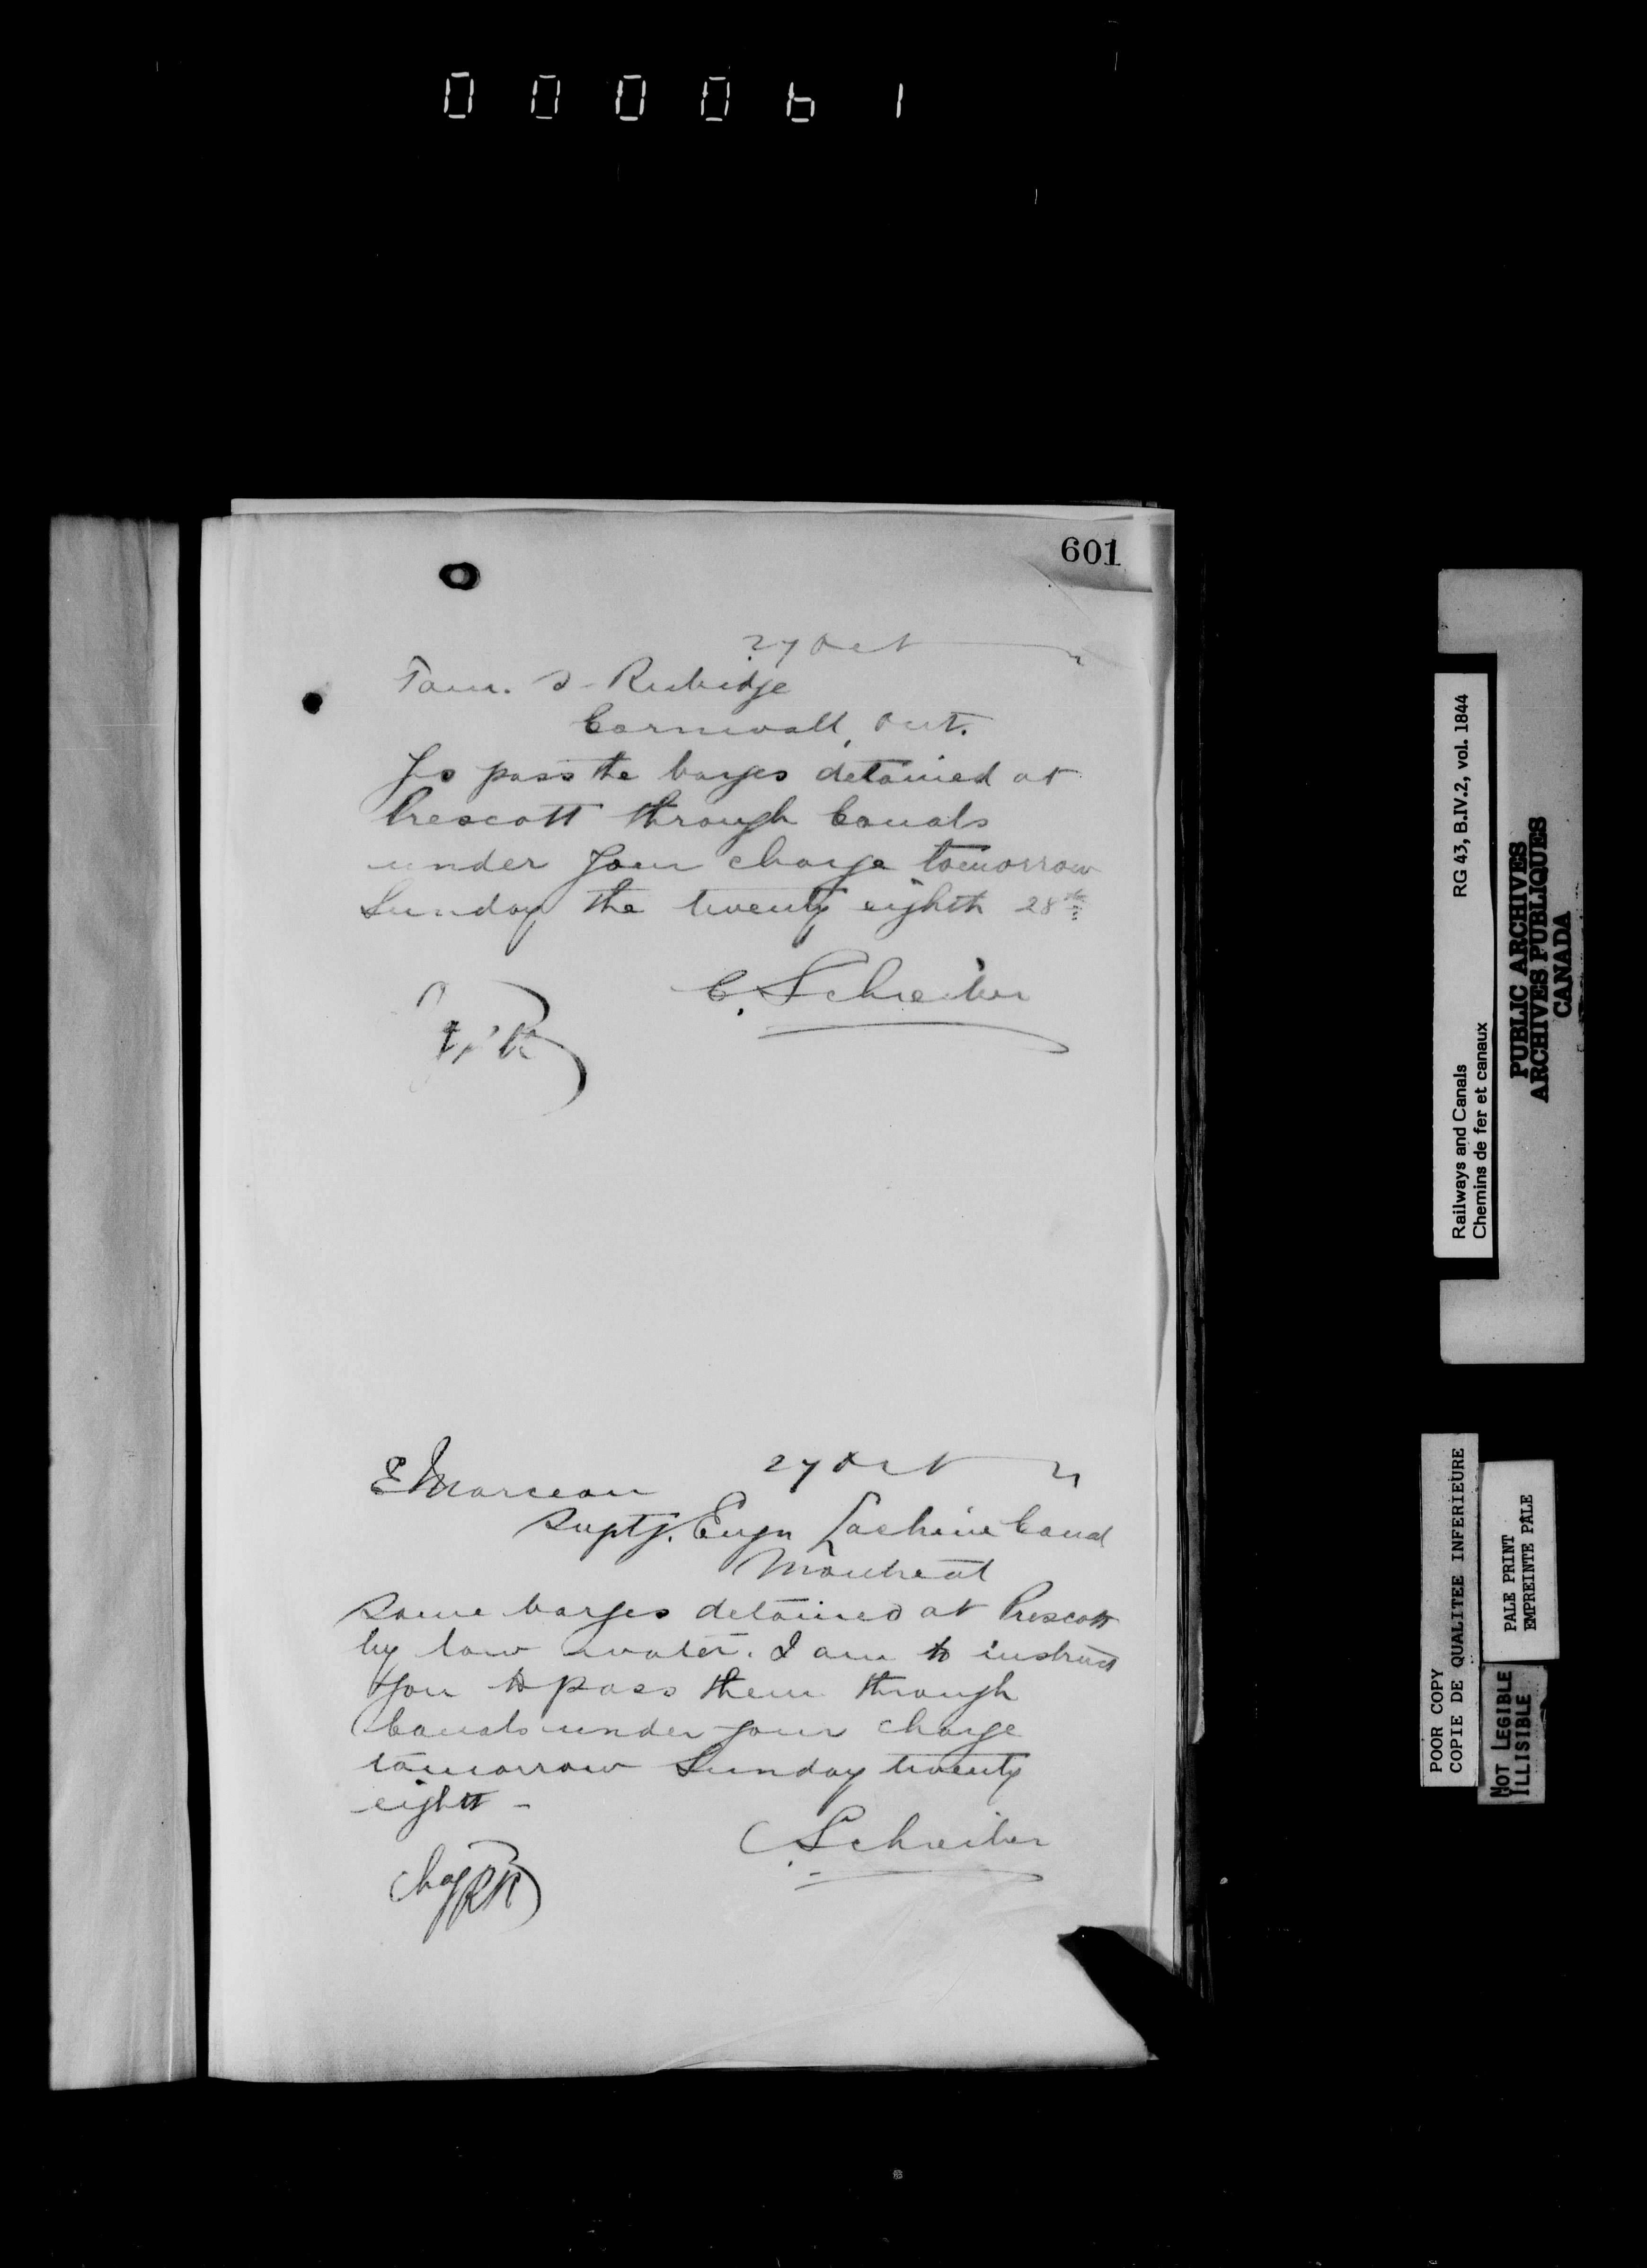 000061
601
27 Oct
Tom. S. Rubidge
Cornwall, Ont.
pass the barges detained at
Prescott through Canals
under your charge tomorrow
Sunday the twenty eighth 28th
C. Schreiber
27 Oct
E Marceau
Suptg. Engn Lachine Canal
Montreal
Some barges detained at Prescott
by low water. I am to instruct
you to pass them through
Canals under your charge
tomorrow Sunday twenty
eighth -
C. Schreiber
Chg
Railways and Canals RG 43, B.IV.2, vol. 1844
Chemins de fer et canaux
PUBLIC ARCHIVES
ARCHIVES PUBLIQUES
CANADA
POOR COPY
COPIE DE QUALITEE INFERIEURE
PALE PRINT
EMPREINTE PALE
NOT LEGIBLE
ILLISIBLE